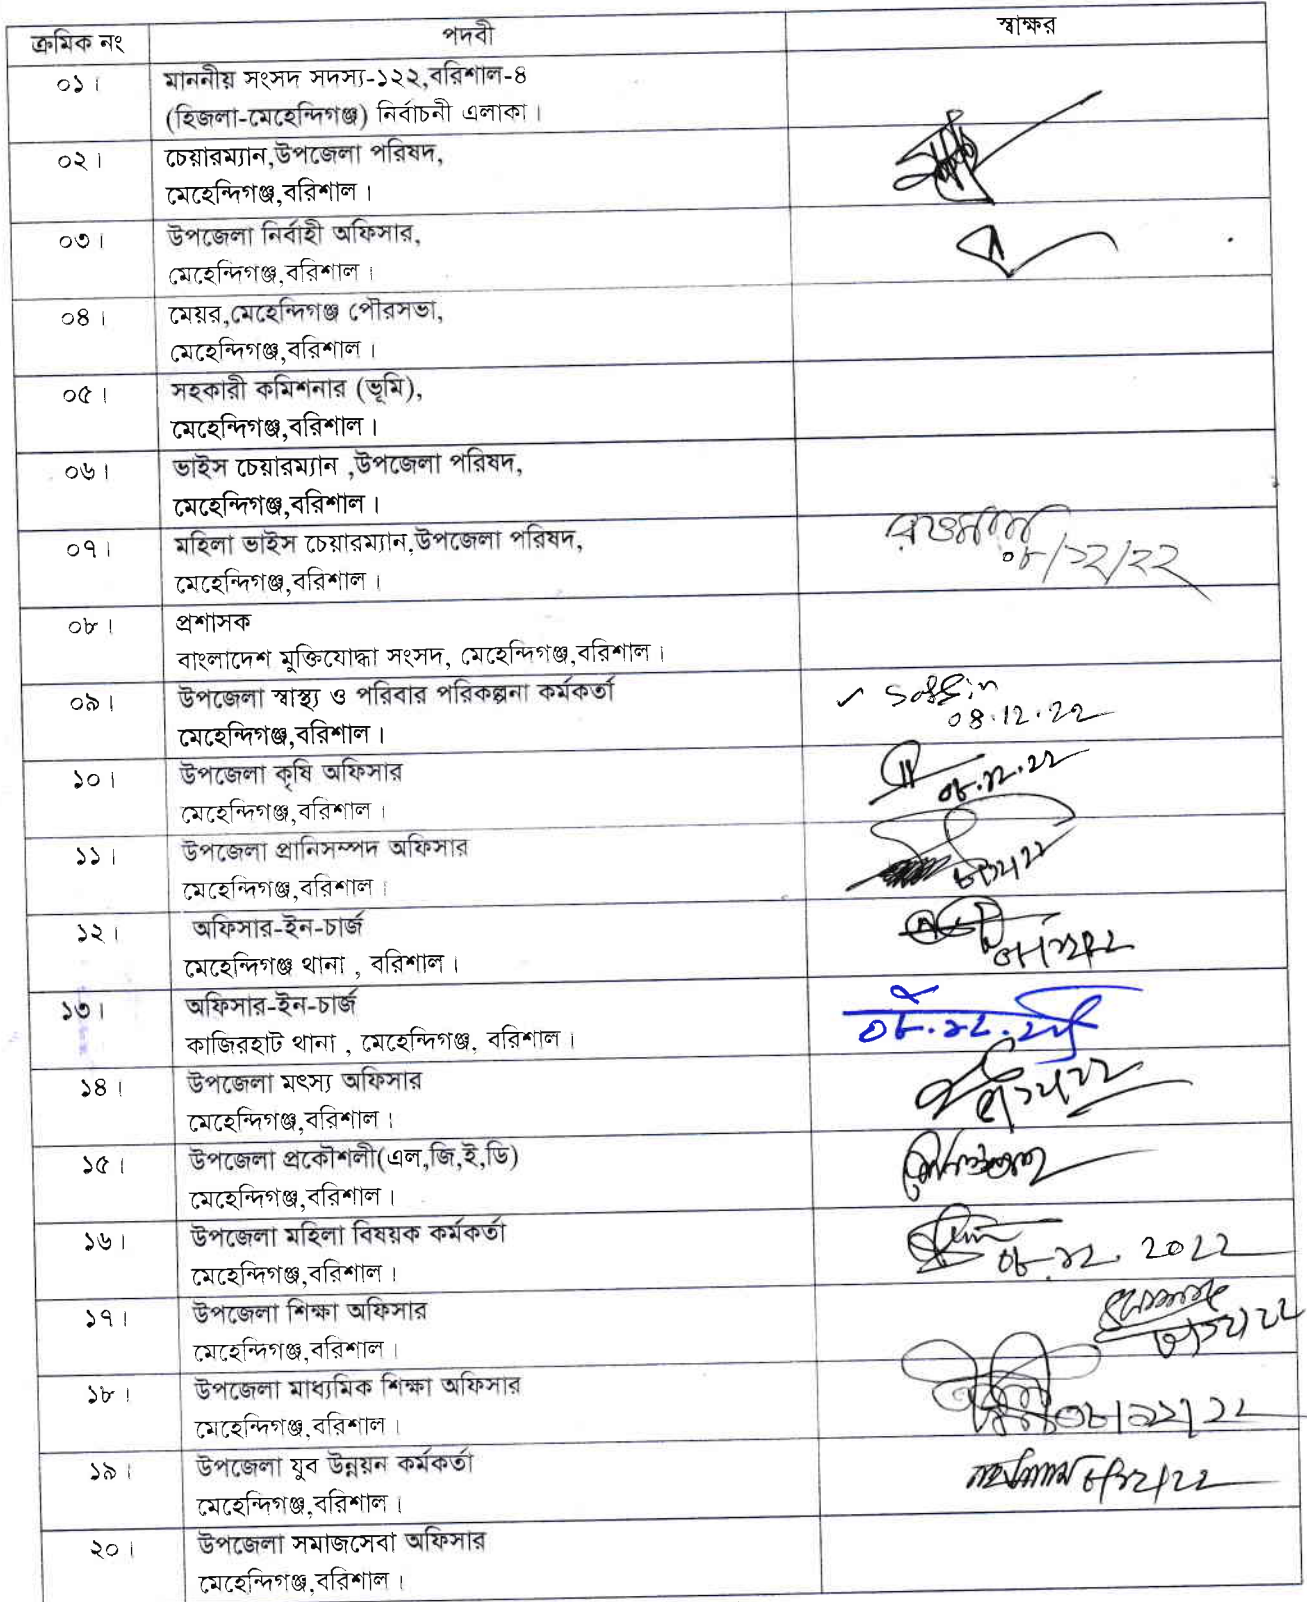 ক্রমিক নং পদবী স্বাক্ষর
০১। মাননীয় সংসদ সদস্য-১২২,বরিশাল-৪
(হিজলা-মেহেন্দিগঞ্জ) নির্বাচনী এলাকা।
০২। চেয়ারম্যান,উপজেলা পরিষদ,
মেহেন্দিগঞ্জ,বরিশাল।
০৩। উপজেলা নির্বাহী অফিসার,
মেহেন্দিগঞ্জ,বরিশাল।
০৪। মেয়র,মেহেন্দিগঞ্জ পৌরসভা,
মেহেন্দিগঞ্জ,বরিশাল।
০৫। সহকারী কমিশনার (ভূমি),
মেহেন্দিগঞ্জ,বরিশাল।
০৬। ভাইস চেয়ারম্যান ,উপজেলা পরিষদ,
মেহেন্দিগঞ্জ,বরিশাল।
০৭। মহিলা ভাইস চেয়ারম্যান,উপজেলা পরিষদ,
মেহেন্দিগঞ্জ,বরিশাল। ০৮/১২/২২
০৮। প্রশাসক
বাংলাদেশ মুক্তিযোদ্ধা সংসদ, মেহেন্দিগঞ্জ,বরিশাল।
০৯। উপজেলা স্বাস্থ্য ও পরিবার পরিকল্পনা কর্মকর্তা
মেহেন্দিগঞ্জ,বরিশাল। 08.12.22
১০। উপজেলা কৃষি অফিসার
মেহেন্দিগঞ্জ,বরিশাল। ০৮.১২.২২
১১। উপজেলা প্রানিসম্পদ অফিসার
মেহেন্দিগঞ্জ,বরিশাল।
১২। অফিসার-ইন-চার্জ
মেহেন্দিগঞ্জ থানা , বরিশাল।
১৩। অফিসার-ইন-চার্জ
কাজিরহাট থানা , মেহেন্দিগঞ্জ, বরিশাল। ০৮.১২.২২
১৪। উপজেলা মৎস্য অফিসার
মেহেন্দিগঞ্জ,বরিশাল।
১৫। উপজেলা প্রকৌশলী(এল,জি,ই,ডি)
মেহেন্দিগঞ্জ,বরিশাল।
১৬। উপজেলা মহিলা বিষয়ক কর্মকর্তা
মেহেন্দিগঞ্জ,বরিশাল। ০৮.১২.2022
১৭। উপজেলা শিক্ষা অফিসার
মেহেন্দিগঞ্জ,বরিশাল।
১৮। উপজেলা মাধ্যমিক শিক্ষা অফিসার
মেহেন্দিগঞ্জ,বরিশাল। ০৮/১২/২২
১৯। উপজেলা যুব উন্নয়ন কর্মকর্তা
মেহেন্দিগঞ্জ,বরিশাল। ৮/১২/২২
২০। উপজেলা সমাজসেবা অফিসার
মেহেন্দিগঞ্জ,বরিশাল।